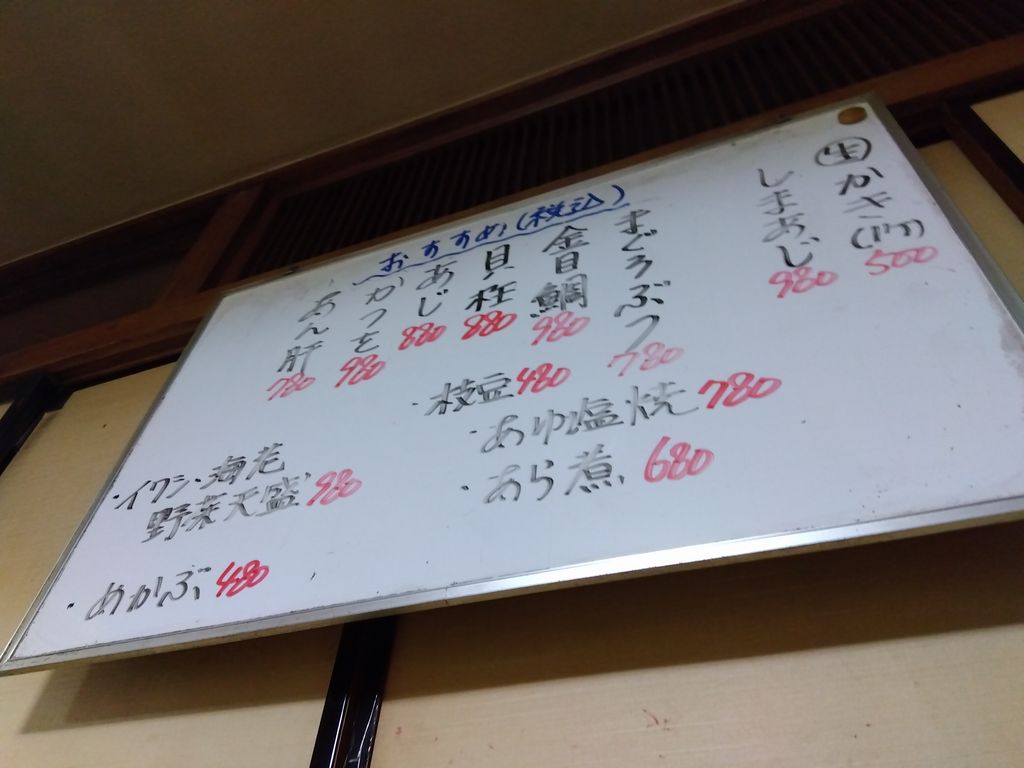 おすすめ(税込)
生かき(1ケ) 500
しまあじ 980
まぐろぶつ 780
金目鯛 980
貝柱 880
あじ 880
かつを 980
あん肝 780
・枝豆 480
・あゆ塩焼 780
・あら煮 680
・イワシ・海老
野菜天盛 980
・めかぶ 480